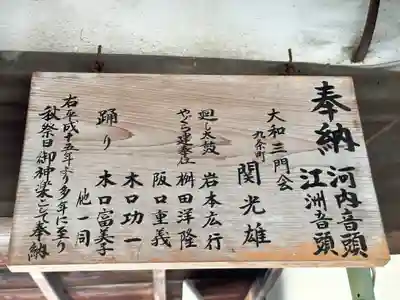 奉納
河内音頭
江洲音頭
大和三門会
九条町
関光雄
廻し太鼓
岩本広行
やぐら建立
桝田洋隆
阪口重義
踊り
木口功一
木口富美子
他一同
右平成十五年より多年に至り
秋祭日御神楽として奉納